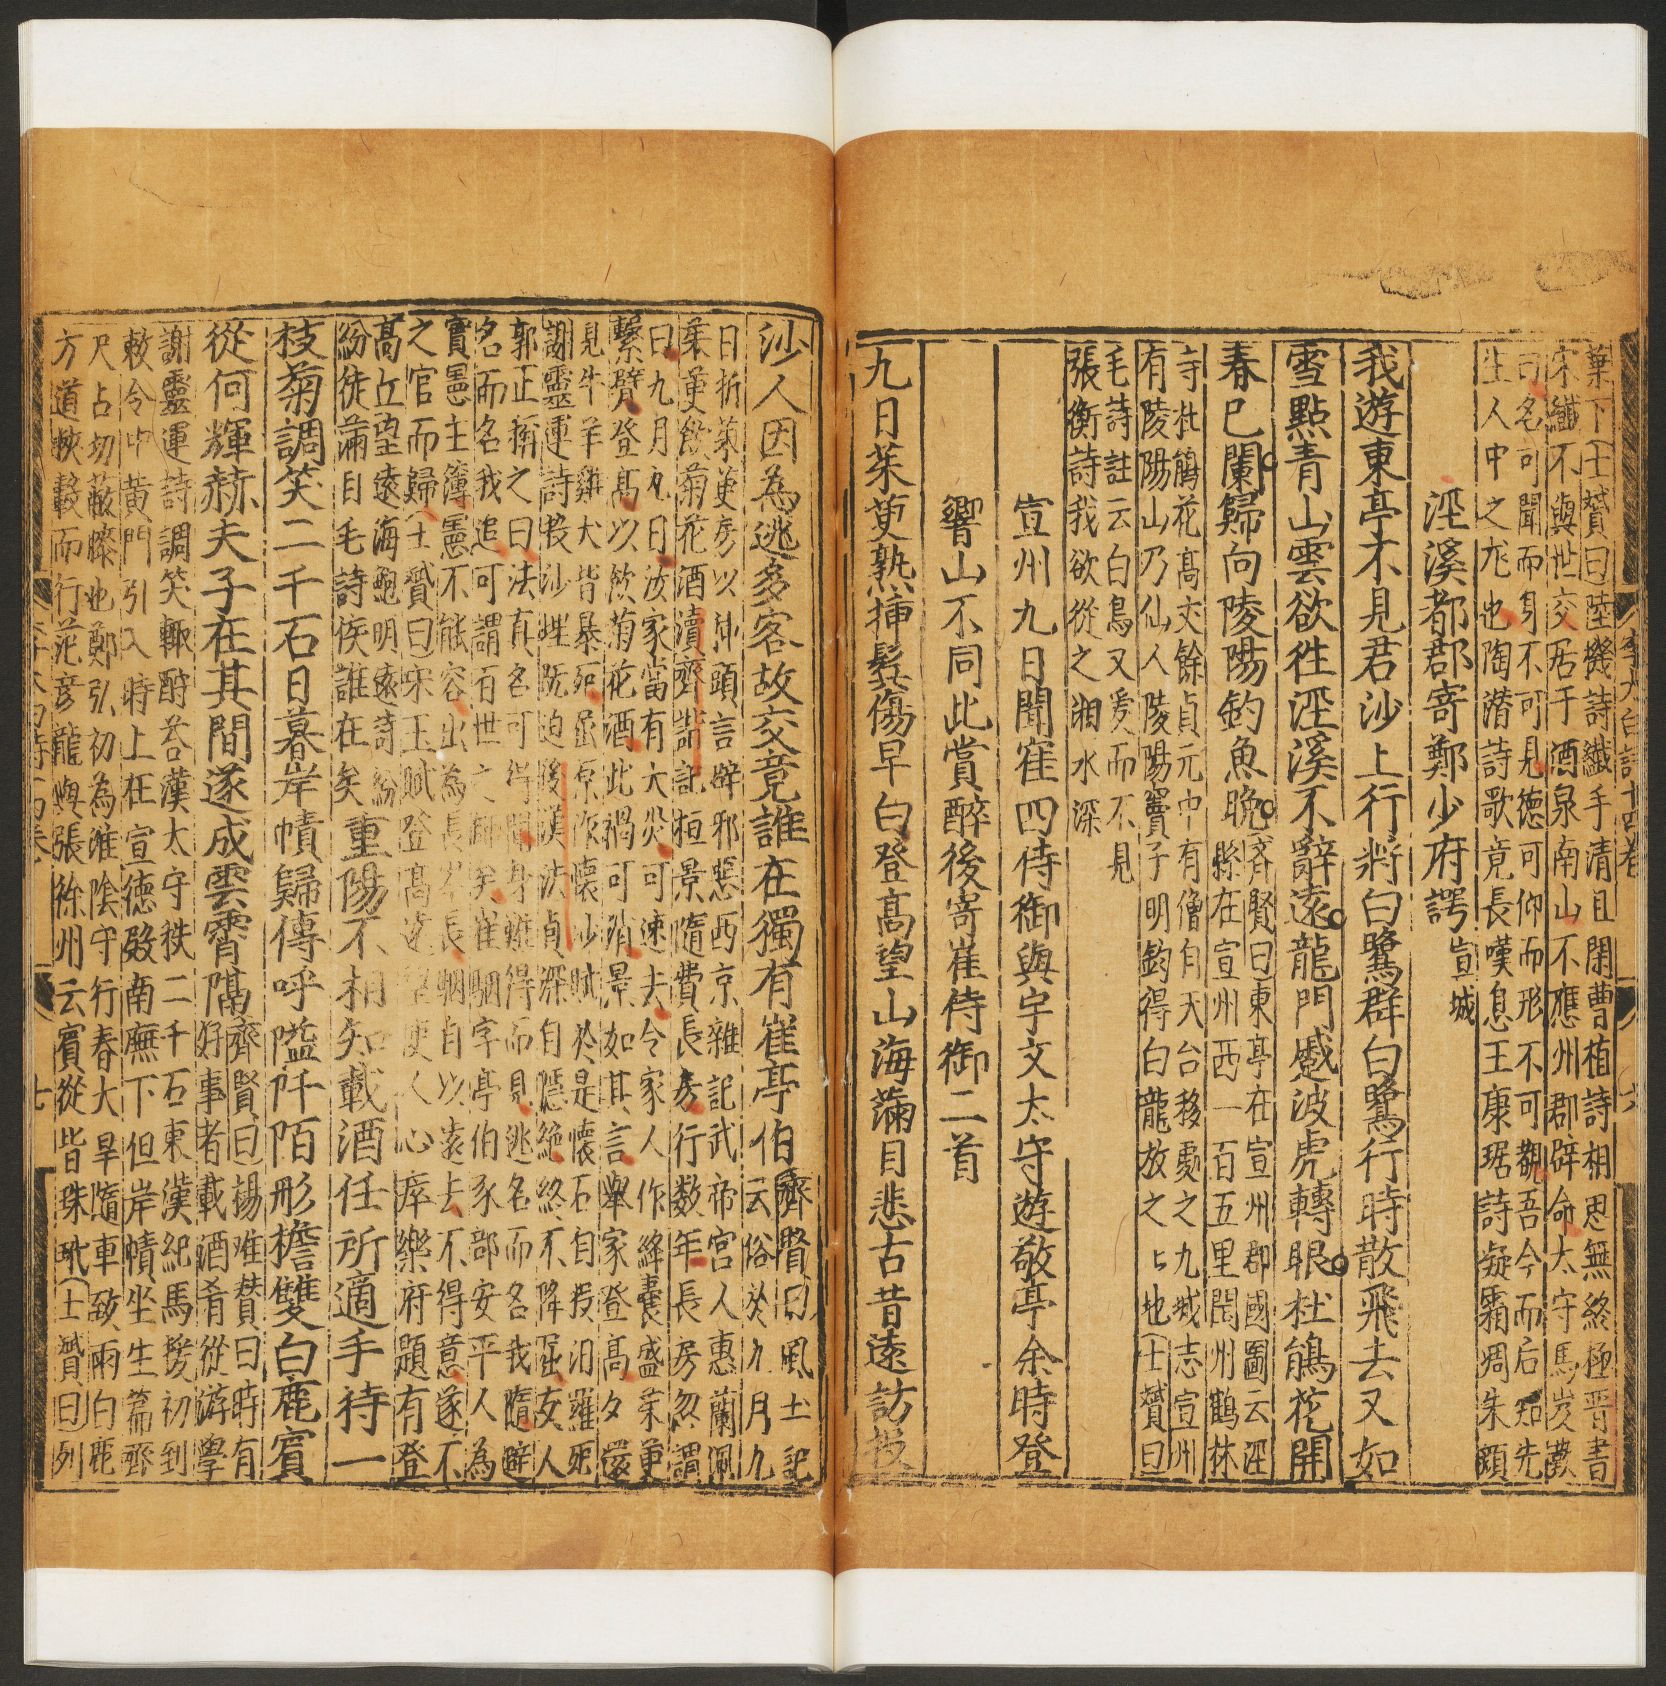 葉下(士贇曰)陸機詩纖手清且閑曹植詩相思無終極晋書
宋纖不與世交居于酒泉南山不應州郡辟命太守馬岌歎
曰名可聞而身不可見德可仰而形不可覩吾今而后知先
生人中之尨也陶潛詩歌竟長嘆息王康琚詩凝霜凋朱顔
涇溪都郡寄鄭少府諤 宣城
我遊東亭不見君沙上行將白鷺群白鷺行時散飛去又如
雪點青山雲欲徃涇溪不辭遠龍門蹙波虎轉眼杜鵑花開
春已闌歸向陵陽釣魚晚
齊賢曰東亭在宣州郡國圖云涇
縣在宣州西一百五里閬州鶴林
寺杜鵑花高丈餘貞元中有僧自天台移處之九域志宣州
有陵陽山乃仙人陵陽竇子明釣得白龍放之ヒ地(士贇曰
毛詩註云白鳥又爰而不見
張衡詩我欲從之湘水深
宣州九日聞崔四侍御與宇文太守遊敬亭余時登
響山不同此賞醉後寄崔侍御二首
九日茱萸熟揷鬂傷早白登高望山海滿目悲古昔遠訪投
李太白詩十四卷 六
沙人因為逃多客故交竟誰在獨有崔亭伯
齊賢曰風土記
云俗於九月九
日折茱萸房以揷頭言辟邪惡西京雜記武帝宮人惠蘭佩
茱萸飲菊花酒續齊諧記桓景隨費長房行数年長房忽謂
曰九月九日汝家當有大灾可速去令家人作絳囊盛茱萸
繫臂登高以飲菊花酒此禍可消景如其言舉家登高夕還
見牛羊雞犬皆暴死屈原作懷沙賦於是懷石自投汨羅死
謝靈運詩投沙理既迫後漢法真深自隱絶終不降屈友人
郭正稱之曰法真名可得聞身難得而見逃名而名我隨避
名而名我追可謂百世之師矣崔駰字亭伯涿郡安平人為
竇憲主簿憲不能容出為長岑長駰自以遠去不得意遂不
之官而歸(士贇曰宋玉賦登高遠望使人心瘁樂府題有登
高丘望遠海鮑明遠詩紛
紛徒滿目毛詩侯誰在矣
重陽不相知載酒任所適手持一
枝菊調笑二千石日暮岸幘歸傳呼隘阡陌彤襜雙白鹿賓
從何輝赫夫子在其間遂成雲霄隔
齊賢曰)楊雄賛曰時有
好事者載酒肴從游學
謝靈運詩調笑輙酧荅漢太守秩二千石東漢紀馬援初到
敕令中黄門引入時上在宣德殿南廡下但岸幘坐生篇齊
尺占切蔽膝也鄭弘初為淮陰守行春大旱隨車致雨白鹿
方道挾轂而行范彦龍與張徐州云賓從皆珠玳(士贇曰)列
七